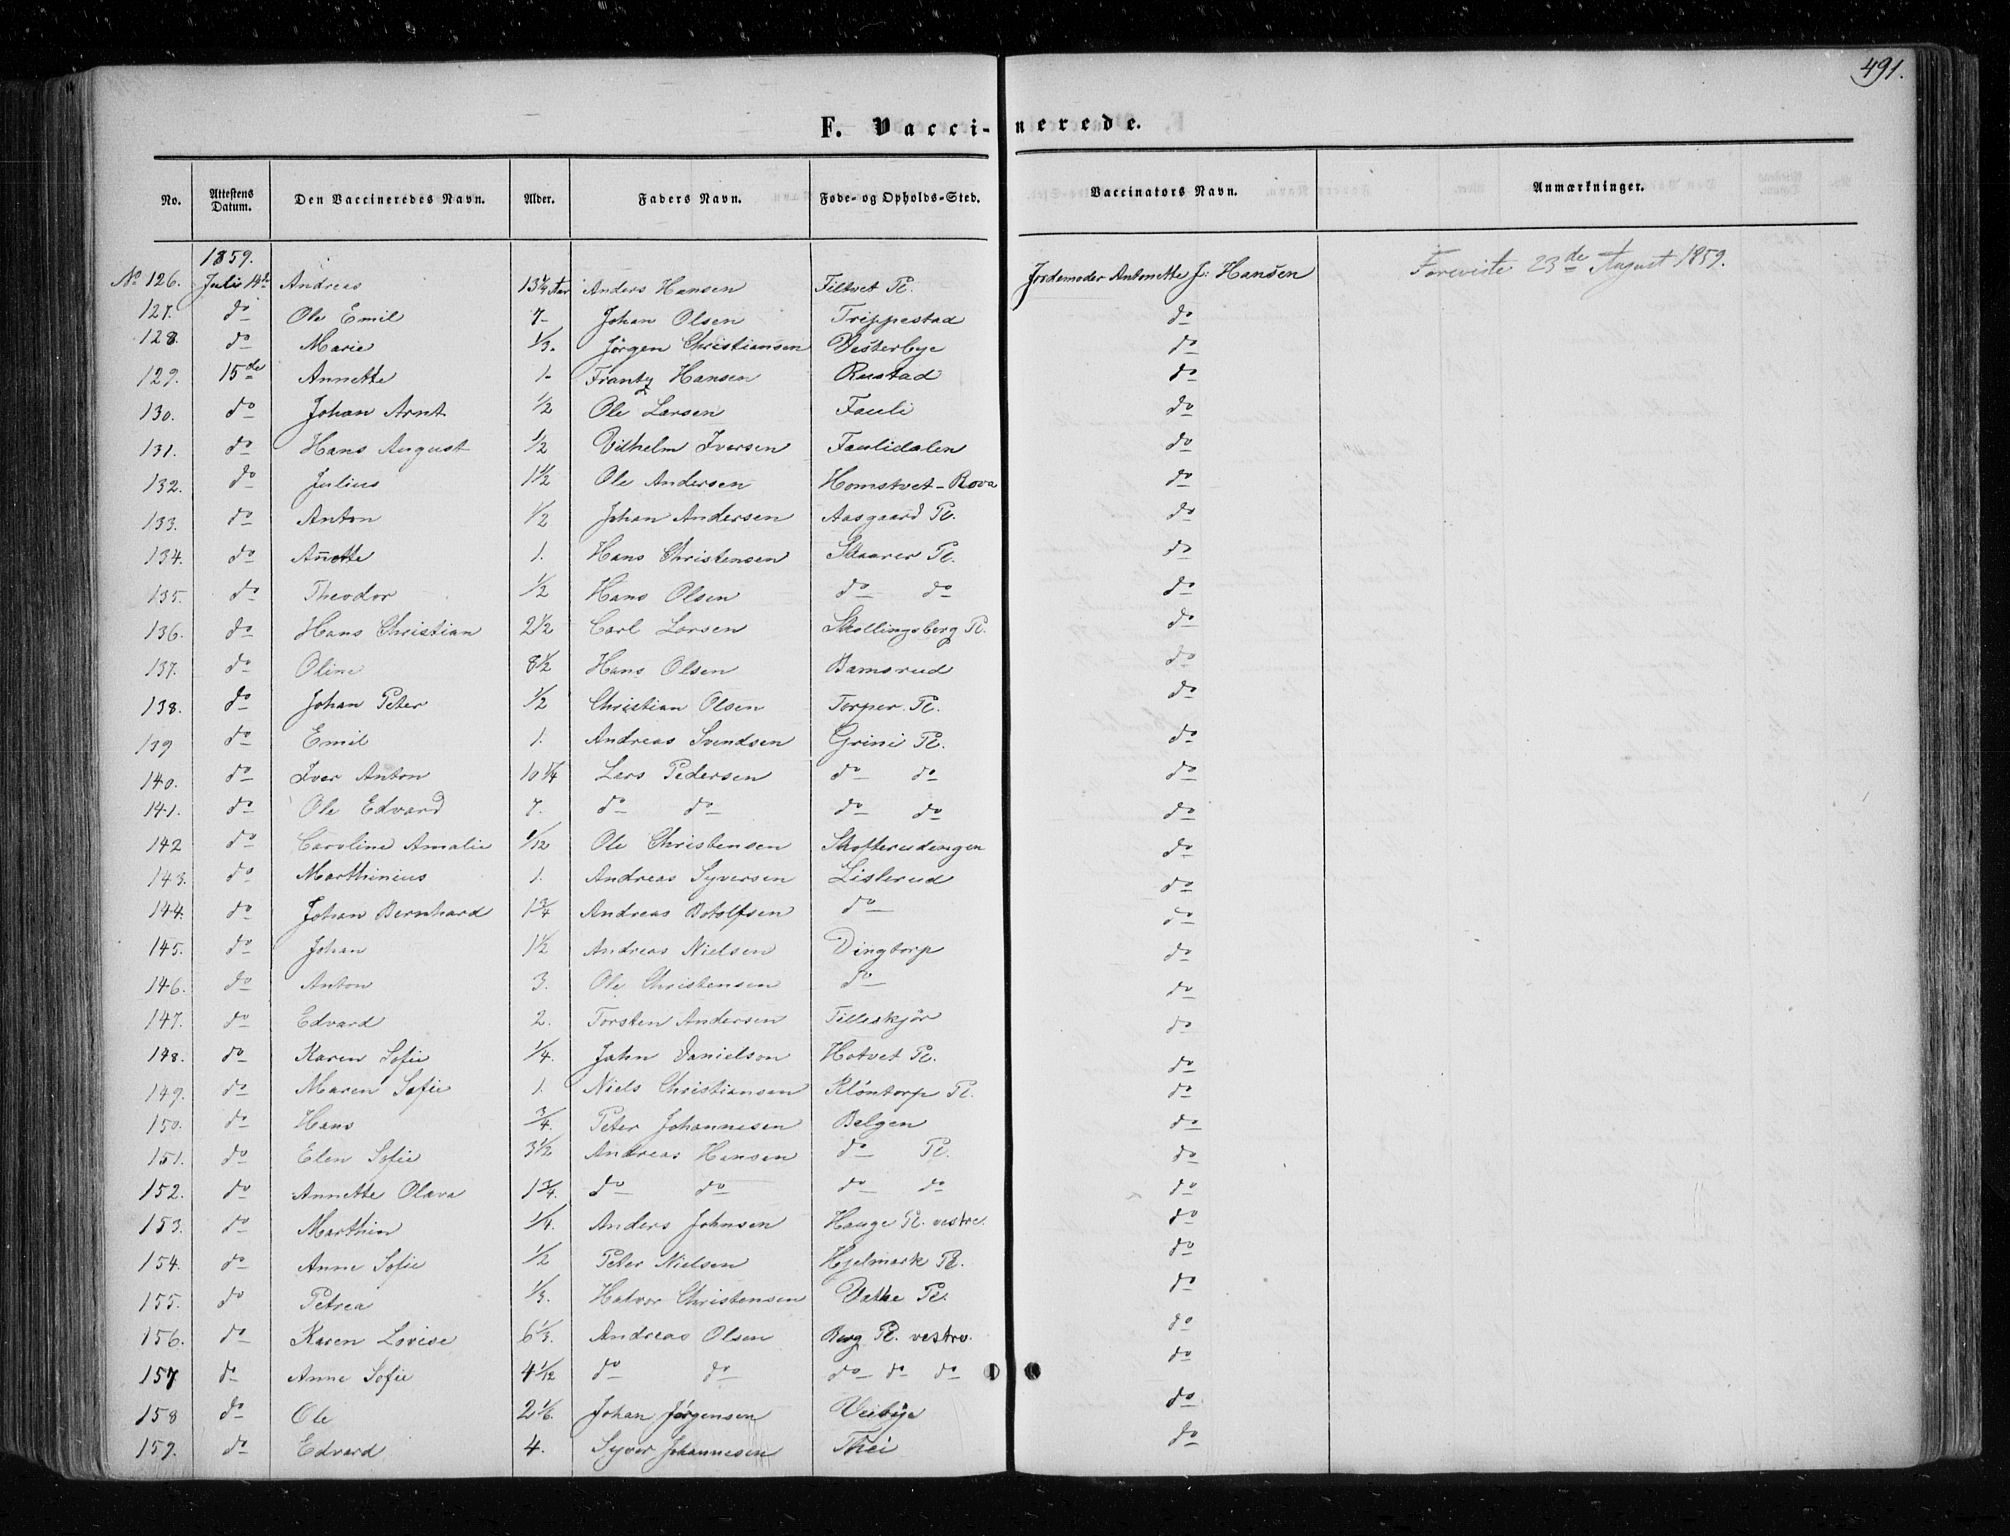 491.
F. Vaccinerede.
No. Attestens Datum. Den Vaccineredes Navn. Alder. Faders Navn. Føde- og Opholds-Sted. Vaccinators Navn. Anmærkninger.
1859.
No 126. Julis 14de Andreas 13¼ Aar Anders Hansen Filtvet Pl. Jordemoder Antonette J: Hansen Foreviste 23de August 1859.
127. do Ole Emil 7- Johan Olsen Trippestad do
128. do Marie 1/3. Jørgen Christiansen Vesterbye do
129. 15de Annette 1- Frantz Hansen Rustad do
130. do Johan Arnt 1/2 Ole Larsen Fauli do
131. do Hans August 1/2 Vilhelm Iversen Faulidalen do
132. do Julius 1½ Ole Andersen Homstvet-Rova do
133. do Anton 1/2 Johan Andersen Aasgaard Pl. do
134. do Añette 1. Hans Christensen Skaarer Pl. do
135. do Theodor 1/2 Hans Olsen do do do
136. do Hans Christian 2½ Carl Larsen Skollingsberg Pl. do
137. do Oline 8½ Hans Olsen Bamsrud do
138. do Johan Peter 1/2 Christian Olsen Torper Pl. do
139 do Emil 1. Andreas Svendsen Grini Pl. do
140. do Iver Anton 10¼ Lars Pedersen do do do
141. do Ole Edvard 7. do do do do do
142 do Caroline Amalie 1/12 Ole Christensen Skofterudengen do
143. do Marthinius 1. Andreas Syversen Listerud do
144. do Johan Bernhard 1¾ Andreas Botolfsen do do
145. do Johan 1½ Andreas Nielsen Dingtorp do
146. do Anton 3. Ole Christensen do do
147. do Edvard 2. Torsten Andersen Tilleskjør do
148. do Karen Sofie 1/4. John Danielson Hotvet Pl. do
149. do Maren Sofie 1. Niels Christiansen Kløntorp Pl. do
150. do Hans 3/4. Peter Johannesen Belgen do
151. do Elen Sofie 3½ Andreas Hansen do Pl. do
152. do Annette Olava 1¾. do do do do do
153. do Marthin 1/4. Anders Johnsen Hauge Pl. vestre. do
154. do Anne Sofie 1/2 Peter Nielsen Hjelmark Pl. do
155. do Petrea 1/3. Halvor Christensen Pl. do
156. do Karen Lovise 6⅓. Andreas Olsen Berg Pl. vestre. do
157 do Anne Sofie 4 1/12 do do do do do do
158 do Ole 2⅙. Johan Jørgensen Veibye do
159. do Edvard 4. Syver Johannesen Thei do